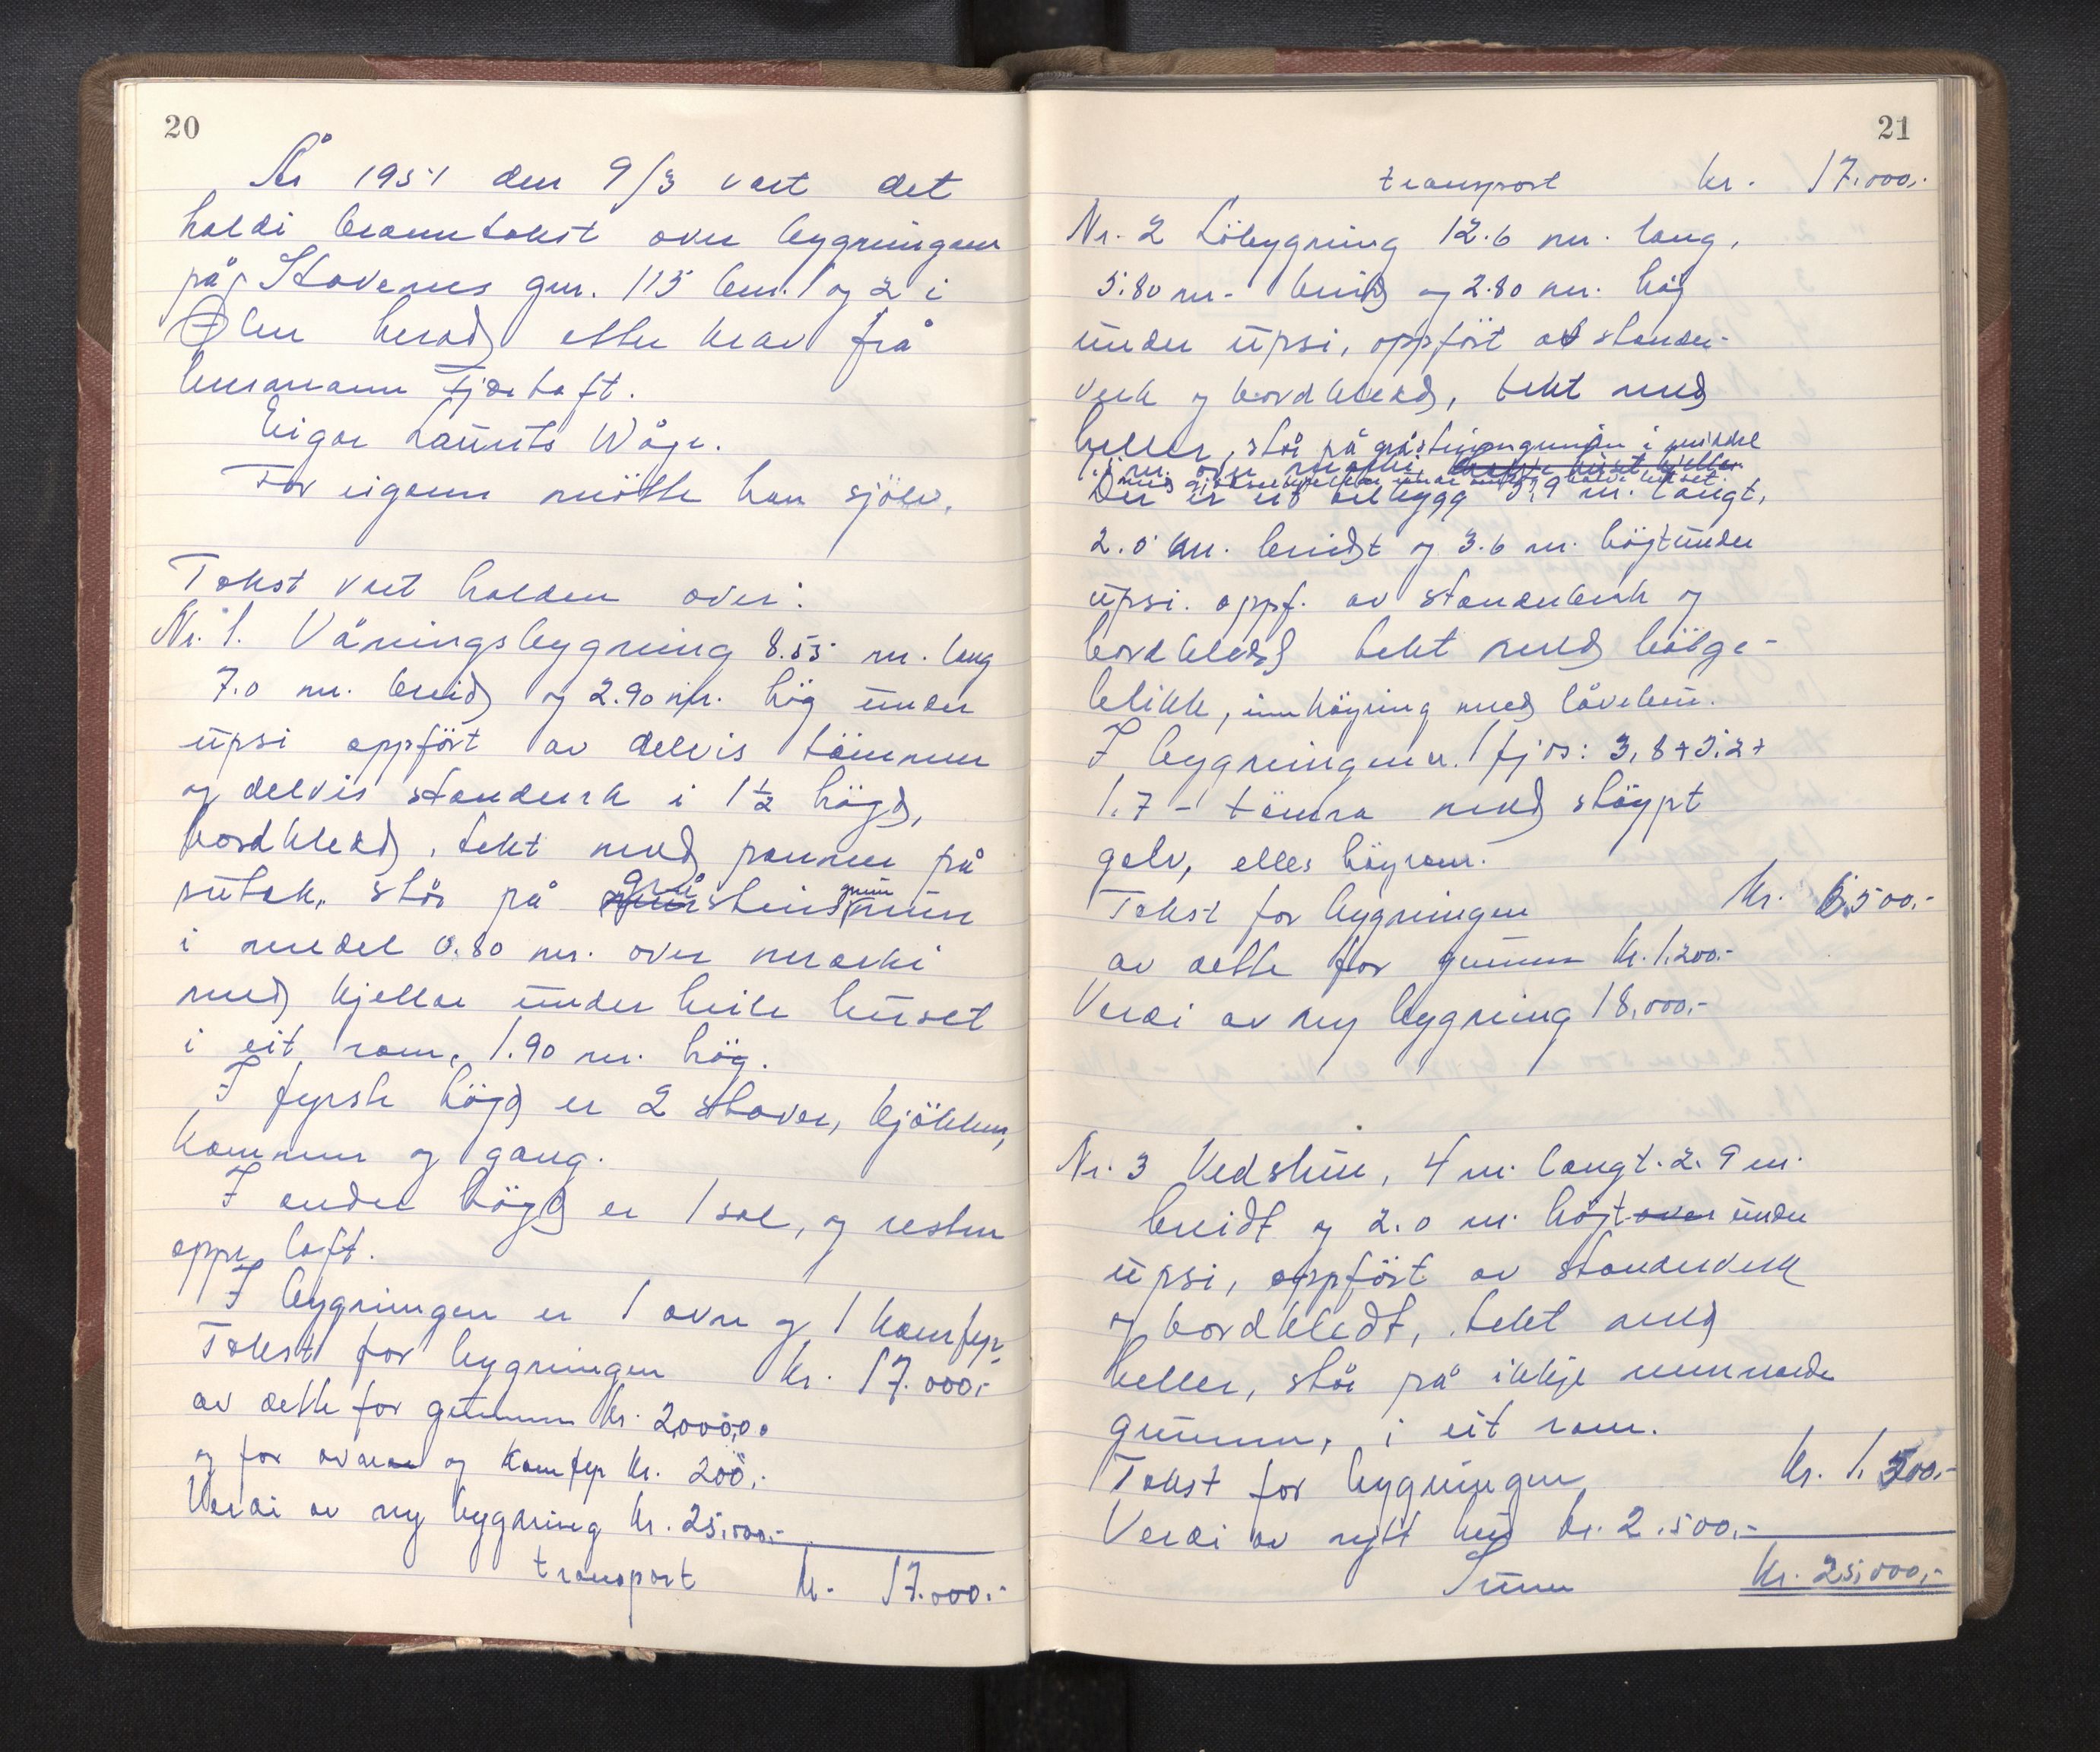 20
År 1951 den 9/3 vart det
haldi branntakst over bygningane
på Stovenes gnr. 115 bnr. 1 og 2 i
Ølen herad etter krav frå
lensmann Fjærtoft.
Eigar Laurits Våge.
For eigaren mötte han sjölv.
Takst vart halden over:
Nr. 1. Våningsbygning 8.55 m. lang
7.0 m. breid og 2.90 m. hög under
upsi oppfört av delvis tömmer
og delvis standerk i 1½ högd,
bordkledd, tekt med pannen på
sutak, står på grå steins grunnmur
i medel 0.80 m. over marki
med kjellar under heile huset
i eit rom, 1.90 m. hög.
I fyrste högd er 2 stover, kjökken,
kammer og gang.
I andre högd er 1 sal, og resten
ope loft.
I bygningen er 1 omn og 1 komfyr.
Takst for bygningen kr. 17.000.-
av dette for grunnen kr. 2,000,00
og for ovnen og komfyr kr. 200.-
Verdi av ny bygning kr. 25,000.-
transport kr. 17.000.-
21
transport kr. 17.000,-
Nr. 2 Löbygning 12.6 m. lang,
5.80 m. breid og 2.80 m. hög
under upsi, oppfört av stender-
verk og bordkledd, tekt med
heller, står på gråsteinsgrunn i middel
m. over marki, halve huset kjellar
med gjödselkjellar under halve huset
Der er eit tilbygg 5.9 m. langt,
2.0 m. breidt og 3.6 m. högt under
upsi. oppf. av stenderverk og
bordkledd tekt med bölge-
blikk, innköyring med låvebru.
I bygningen er 1 fjös: 3,8 + 5.2 +
1.7 - tömra med stöypt
golv, elles höyrom.
Takst for bygningen kr. 6.500.-
av dette for grunnen kr. 1.200.-
Verdi av ny bygning 18,000.-
Nr. 3 Vedskur, 4 m. langt. 2.9 m.
breidt og 2.0 m. högt over under
upsi, oppfört av standerverk
og bordkledt, tekt med
heller, står på ikkje nemnande
grunnen, i eit rom.
Takst for bygningen kr. 1.500.-
Verdi av nytt hus kr. 2.500.-
Sum kr. 25,000,-